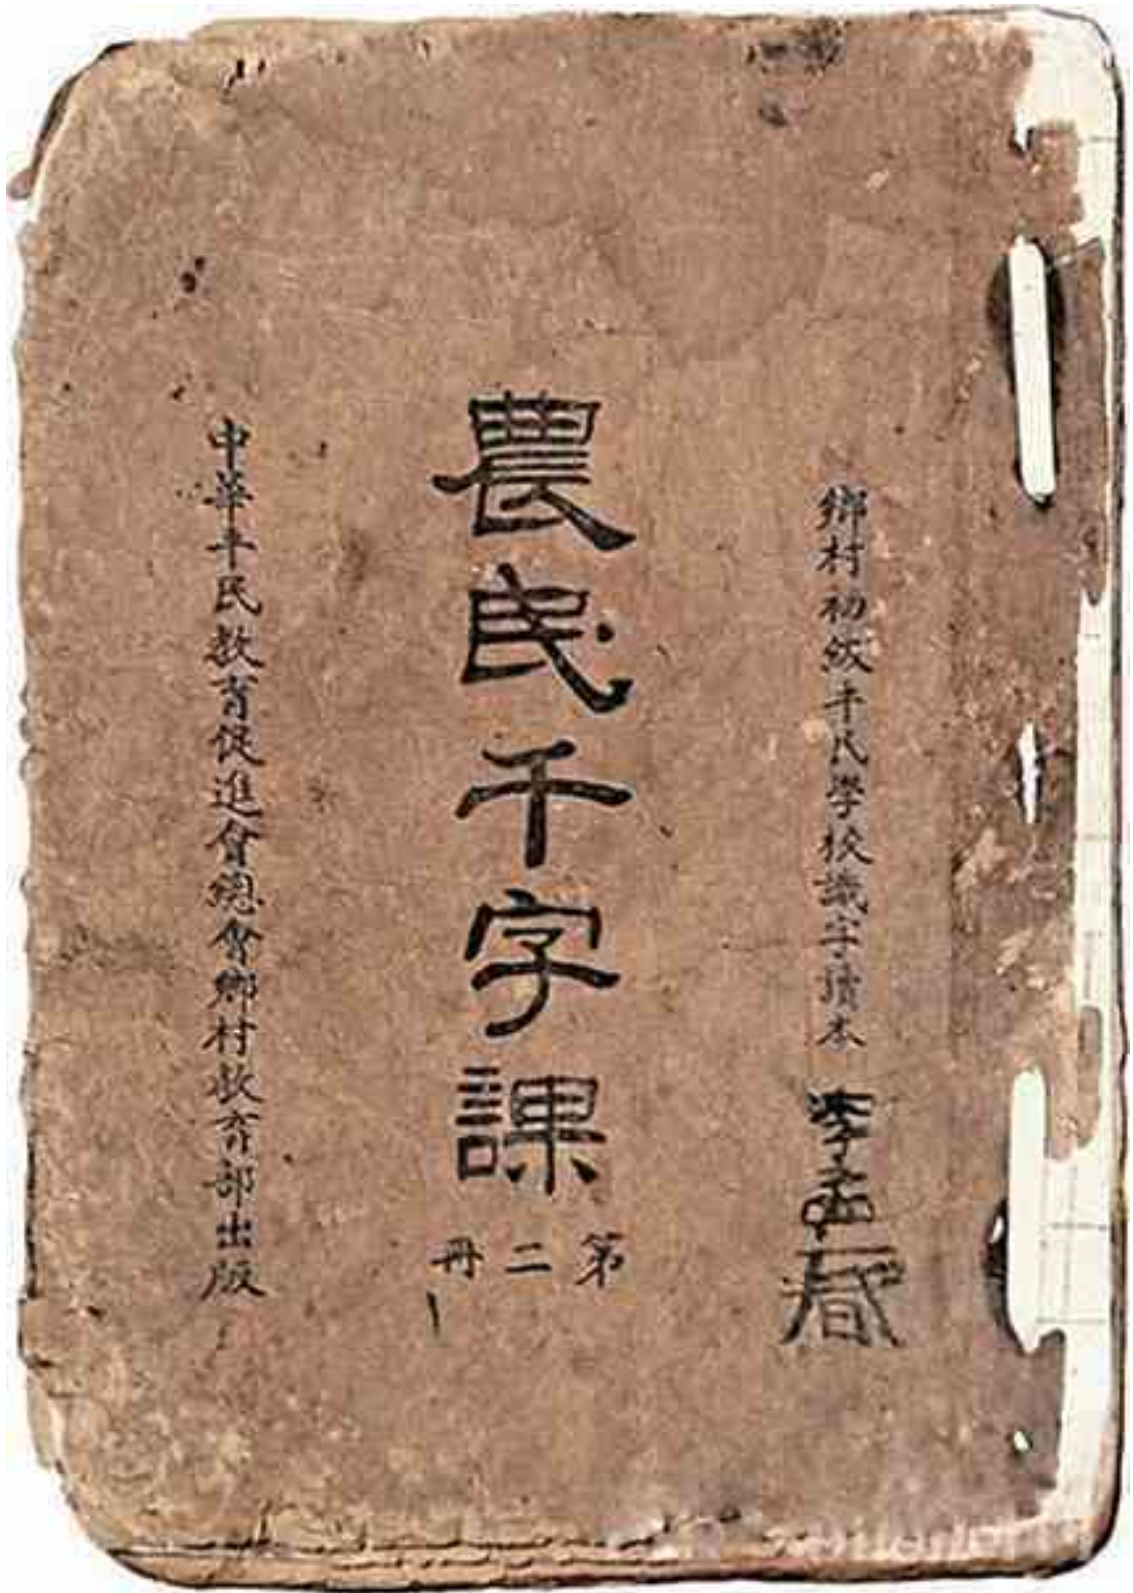 鄉村初級平民學校識字讀本
李孟
農民千字課
第二冊
中華平民教育促進會總會鄉村教育部出版